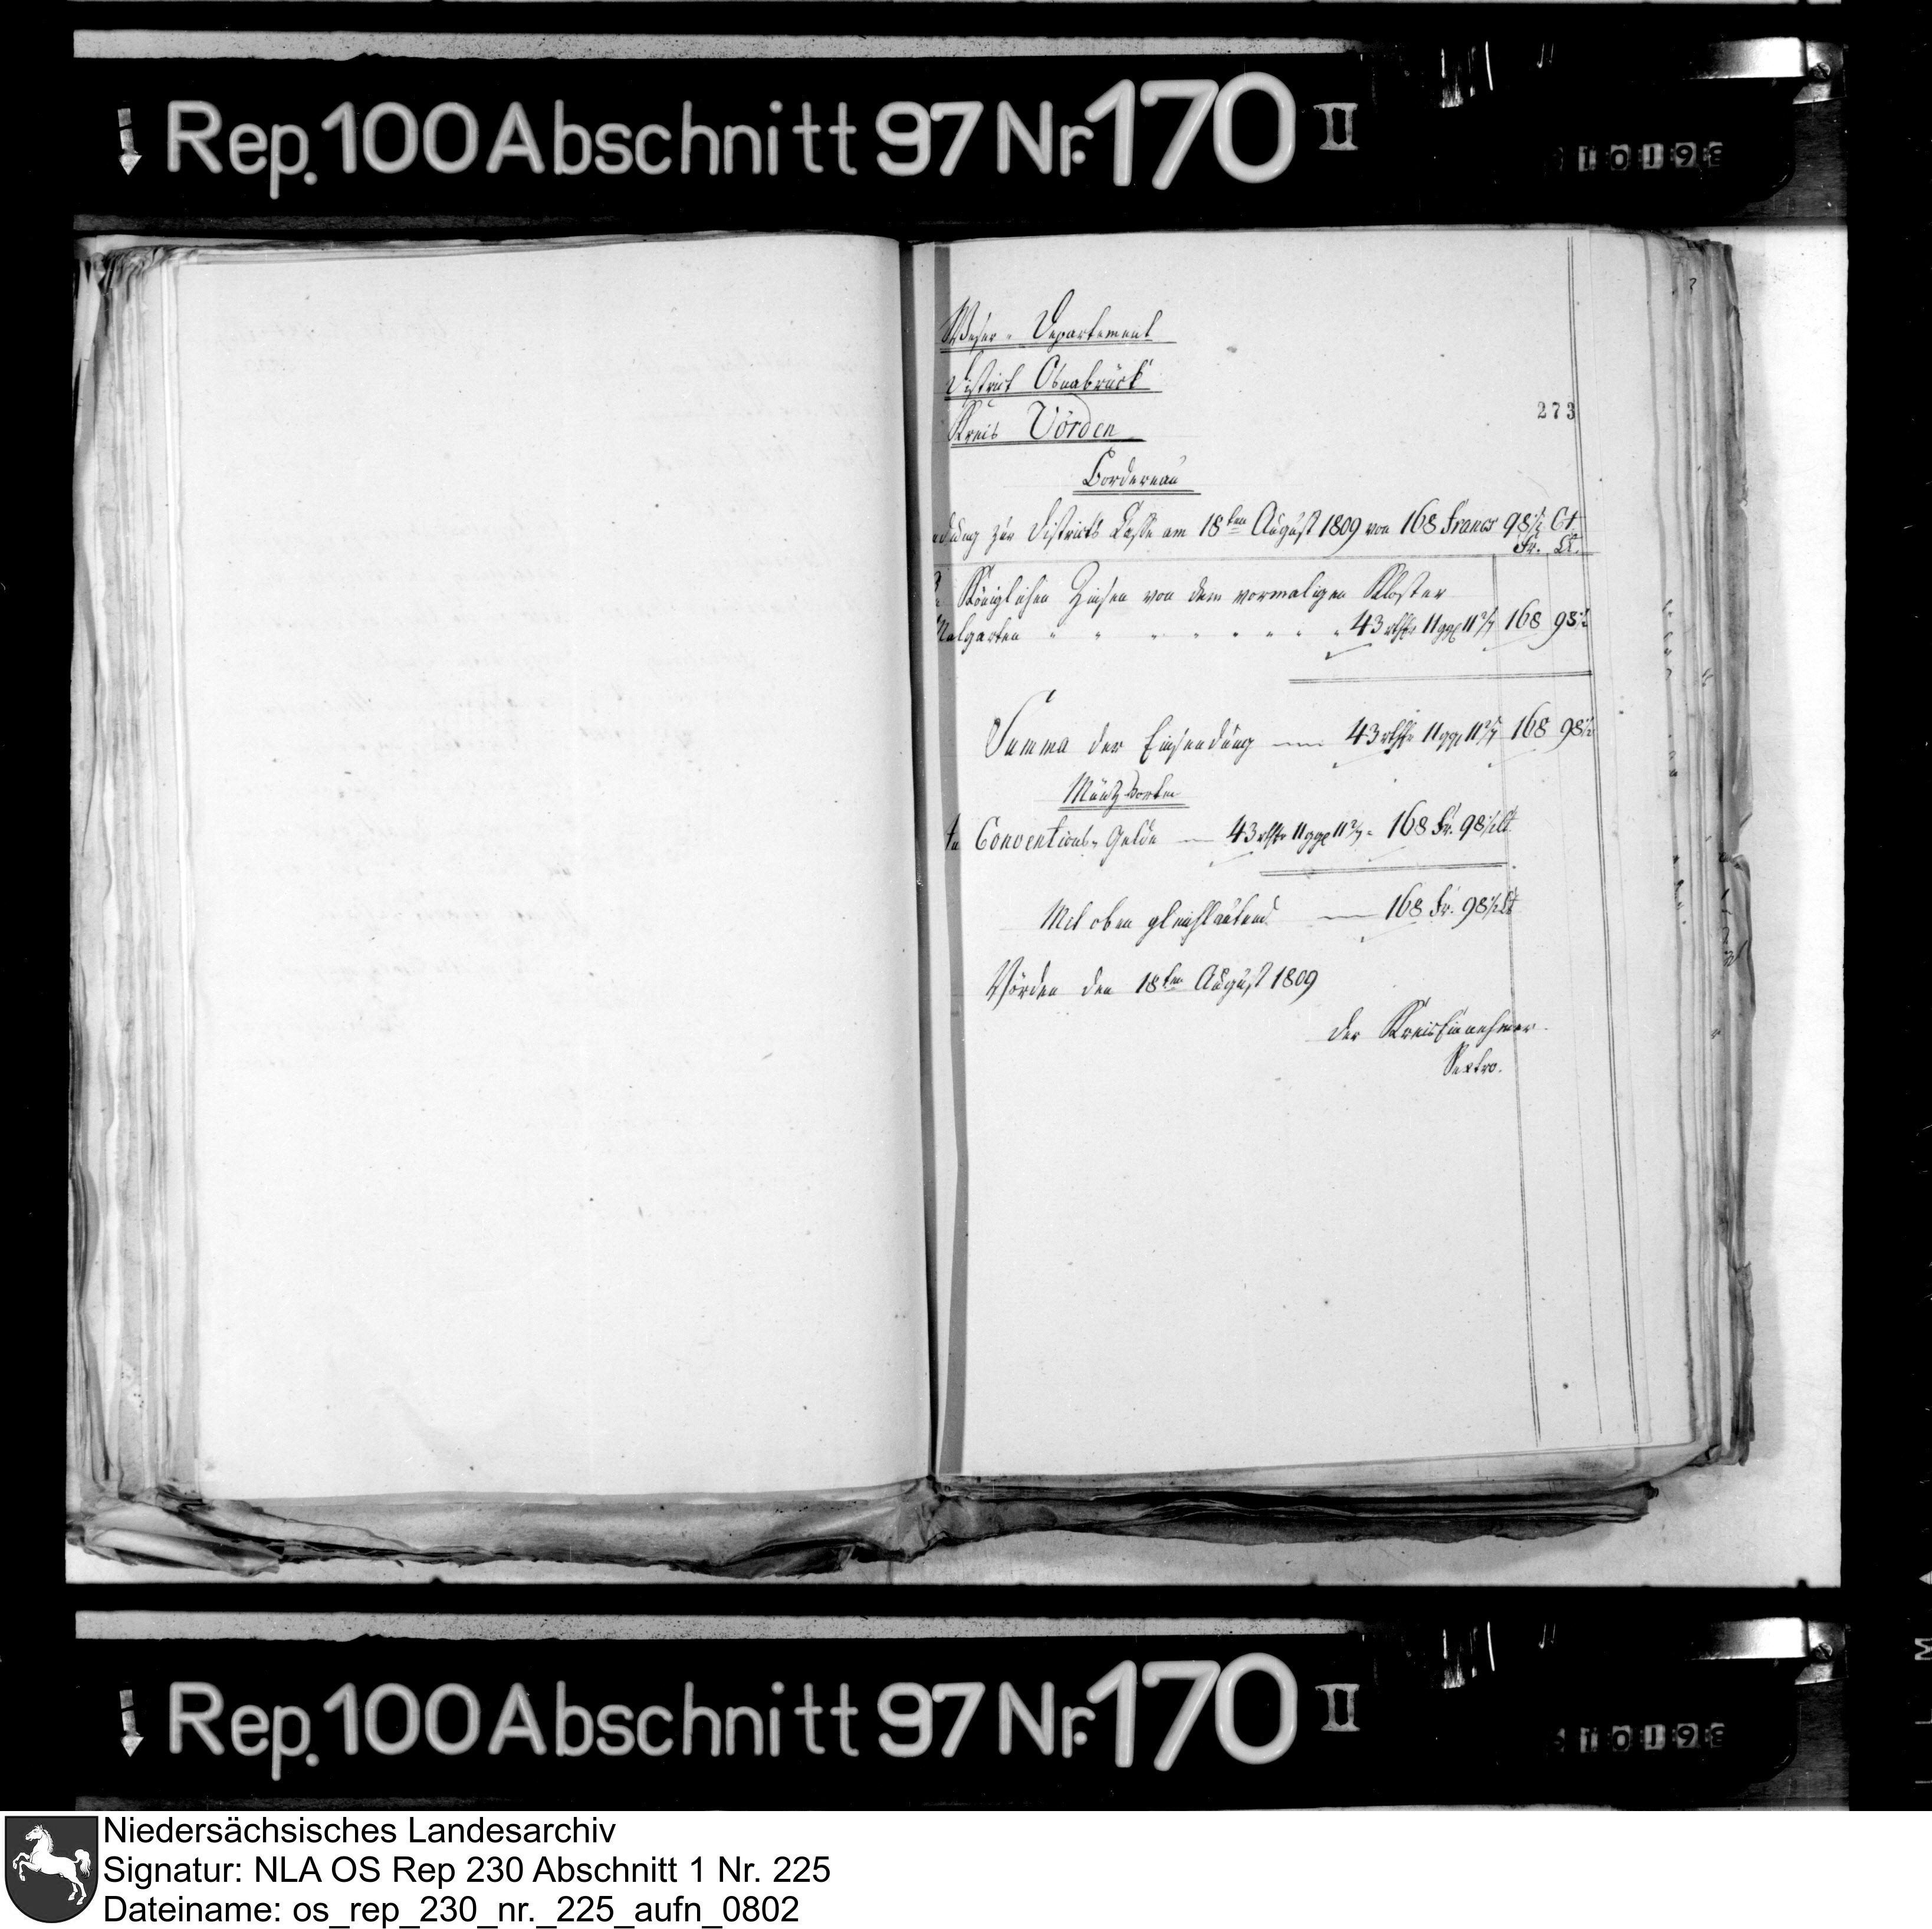 Rep. 100 Abschnitt 97 Nr. 170 II
Weser-Departement
District Osnabrück
Kreis Vörden
273
Bordereau
ndung zur Districts Casse am 18ten August 1809 von 168 Francs 98½ Ct.
Fr. Ct.
Königlichen Zinsen von dem vormaligen Kloster
Malgarten " " " " " " " " 43 rthlr 11 ggl 11 2/7 168 98½
Summa der Einsendung — 43 rthlr 11 ggl 11 2/7 168 98½
Müntz Sorten
In Conventions-Gelde — 43 rthlr 11 ggl 11 2/7 = 168 Fr. 98½ Ct
Mit oben gleichlautend — 168 Fr. 98½ Ct
Vörden den 18ten August 1809
Der Kreis Einnehmer
Sextro.
Rep. 100 Abschnitt 97 Nr. 170 II
Niedersächsisches Landesarchiv
Signatur: NLA OS Rep 230 Abschnitt 1 Nr. 225
Dateiname: os_rep_230_nr._225_aufn_0802